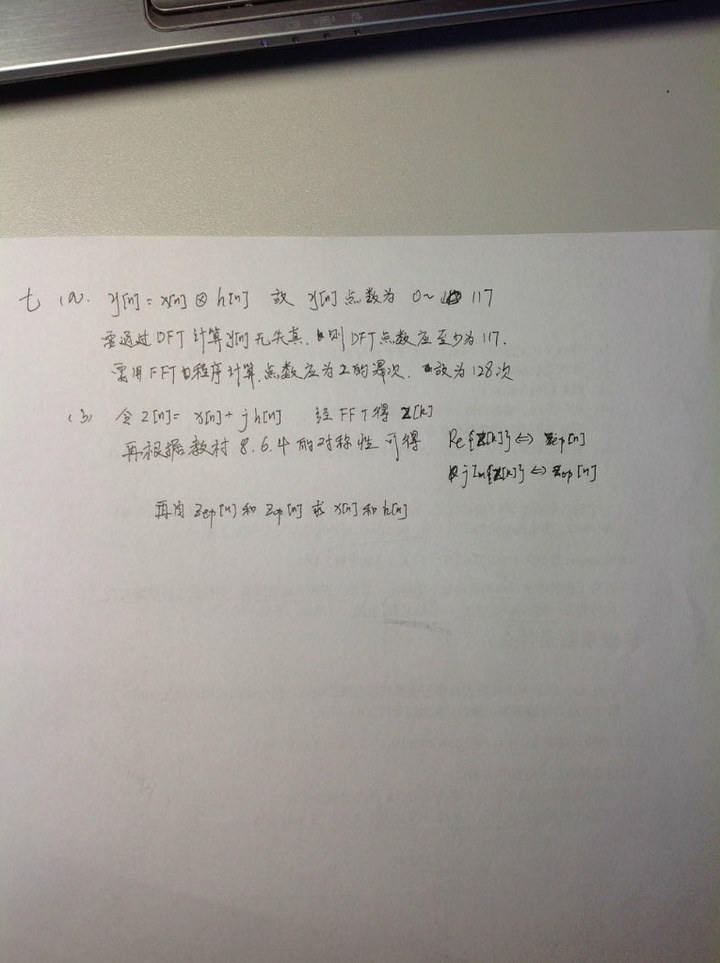 七 (a). y[n] = x[n] ⊗ h[n] 故 y[n] 点数为 0~ 117
需通过DFT计算y[n]无失真, 则DFT点数应至少为117.
需用FFT 程序计算, 点数应为2的幂次. 故为128次
(3) 令 z[n] = x[n] + j h[n] 经FFT得 Z[k]
再根据教材 8.6.4 的对称性可得 Re{Z[k]} ⇔ Zep[n]
j Im{Z[k]} ⇔ Zop[n]
再由 Zep[n] 和 Zop[n] 求 x[n] 和 h[n]